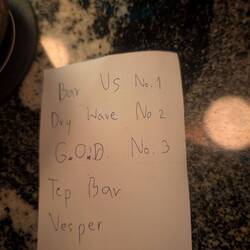 Bar Us No. 1
Dry Wave No 2
G.O.D. No. 3
Tep Bar
Vesper